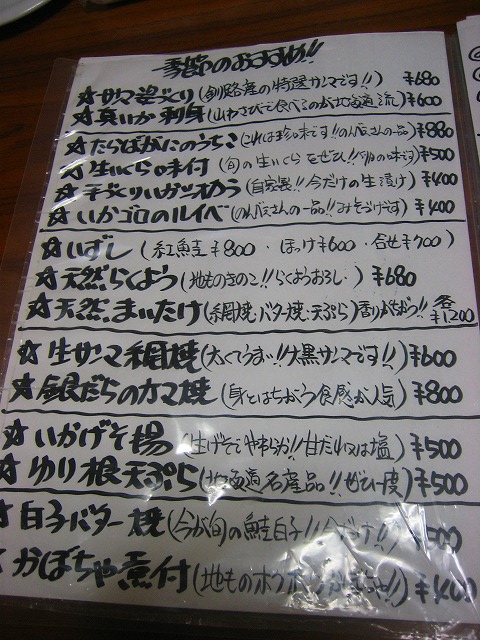 季節のおすすめ!!
☆サンマ姿づくり(釧路産の特選サンマです!!) ¥680
☆真いか刺身(山わさびで食べるのが北海道流) ¥600
☆たらばがにのうちこ(これは珍味です!!のんべえさんの一品) ¥880
☆生いくら味付(旬の生いくらをぜひ!! の味です) ¥500
☆手づくりいかの沖漬(自家製!!今だけの生漬け) ¥400
☆いかゴロのルイベ(のんべえさんの一品!!みそづけです) ¥400
☆いずし(紅鮭¥800・ほっけ¥600・合せ¥700)
☆天然らくよう(地ものきのこ!!らくようおろし・) ¥680
☆天然まいたけ(網焼・バター焼・天ぷら)香りがちがう!! 各¥1200
☆生サンマ網焼(太くてうまい!!大黒サンマです!!) ¥600
☆銀だらのカマ焼(身とはちがう食感が人気) ¥800
☆いかげそ揚(生げそでやわらか!!甘だれ又は塩) ¥500
☆ゆり根天ぷら(北海道名産品!!ぜひ一度) ¥500
☆白子バター焼(今が旬の鮭白子!!今だけ!!) ¥500
☆かぼちゃ煮付(地ものホクホクかぼちゃ!!) ¥400